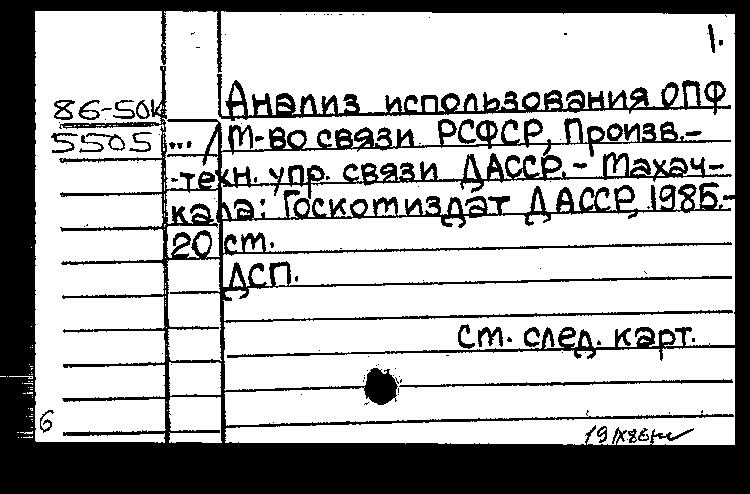 1.
86-50к Анализ использования ОПФ
5505 ... / М-во связи РСФСР, Произв.-
-техн. упр. связи ДАССР. - Махач-
кала: Госкомиздат ДАССР, 1985.-
20 ст.
ДСП.
Cm. след. карт.
6